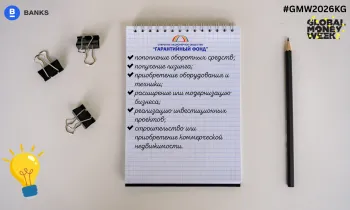 BANKS
#GMW2026KG
GLOBAL
MONEY
WEEK
"ГАРАНТИЙНЫЙ ФОНД"
пополнение оборотных средств;
получение лизинга;
приобретение оборудования и
техники;
расширение или модернизацию
бизнеса;
реализацию инвестиционных
проектов;
строительство или
приобретение коммерческой
недвижимости.